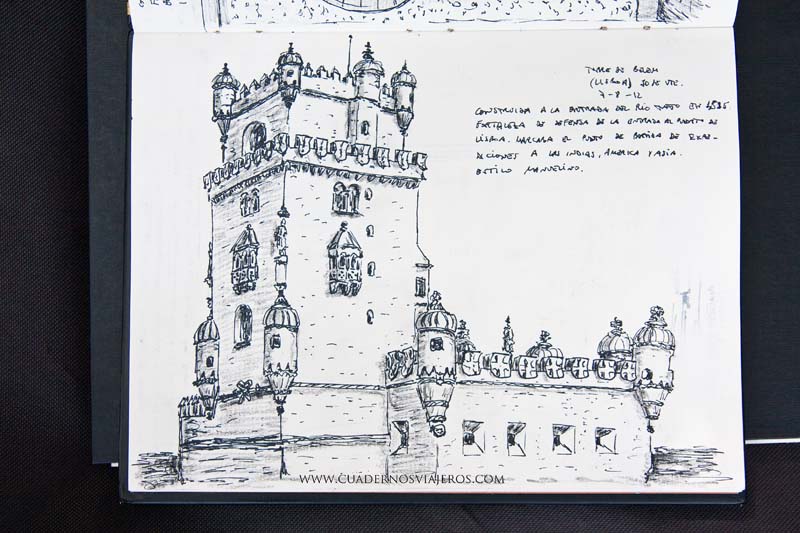 TORRE DE BELEM
(LISBOA) 30 DE VIE.
7-8-12
CONSTRUIDA A LA ENTRADA DEL RÍO TAJO EN 1515
FORTALEZA DE DEFENSA DE LA ENTRADA AL PUERTO DE
LISBOA. MARCABA EL PUNTO DE PARTIDA DE EXPE-
DICIONES A LAS INDIAS, AMERICA Y ASIA.
ESTILO MANUELINO.
WWW.CUADERNOSVIAJEROS.COM